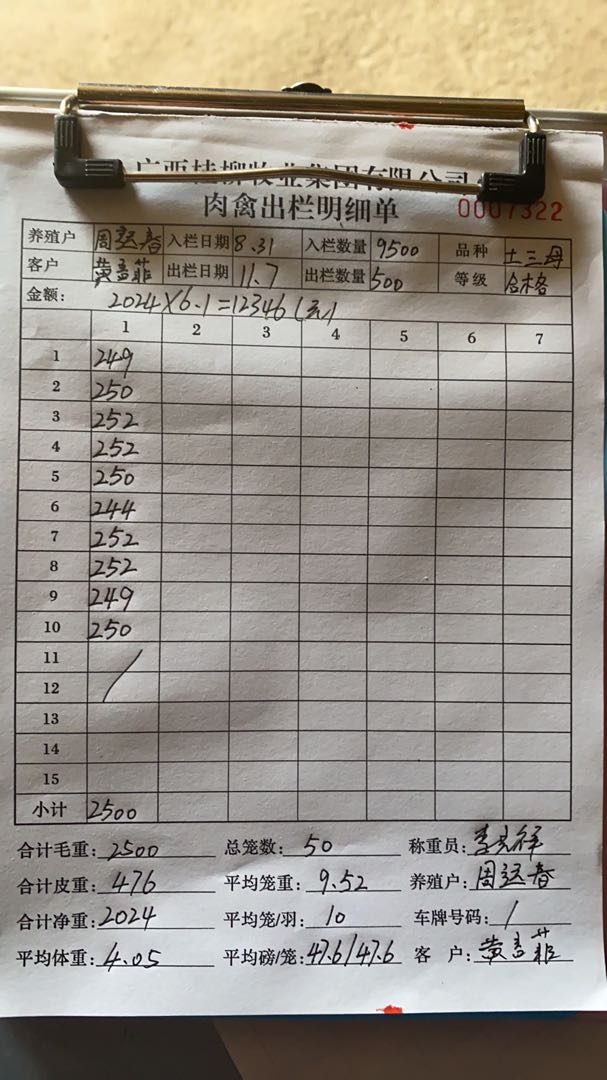 广西桂柳牧业集团有限公司
肉禽出栏明细单 0007322
养殖户 周运春 入栏日期 8.31 入栏数量 9500 品种 土三母
客户 黄 菲 出栏日期 11.7 出栏数量 500 等级 合格
金额: 2024×6.1=12346(元)
1 2 3 4 5 6 7
1 249
2 250
3 252
4 252
5 250
6 244
7 252
8 252
9 249
10 250
11
12
13
14
15
小计 2500
合计毛重: 2500 总笼数: 50 称重员: 李 祥
合计皮重: 476 平均笼重: 9.52 养殖户: 周运春
合计净重: 2024 平均笼/羽: 10 车牌号码: /
平均体重: 4.05 平均磅/笼: 47.6/47.6 客户: 黄 菲